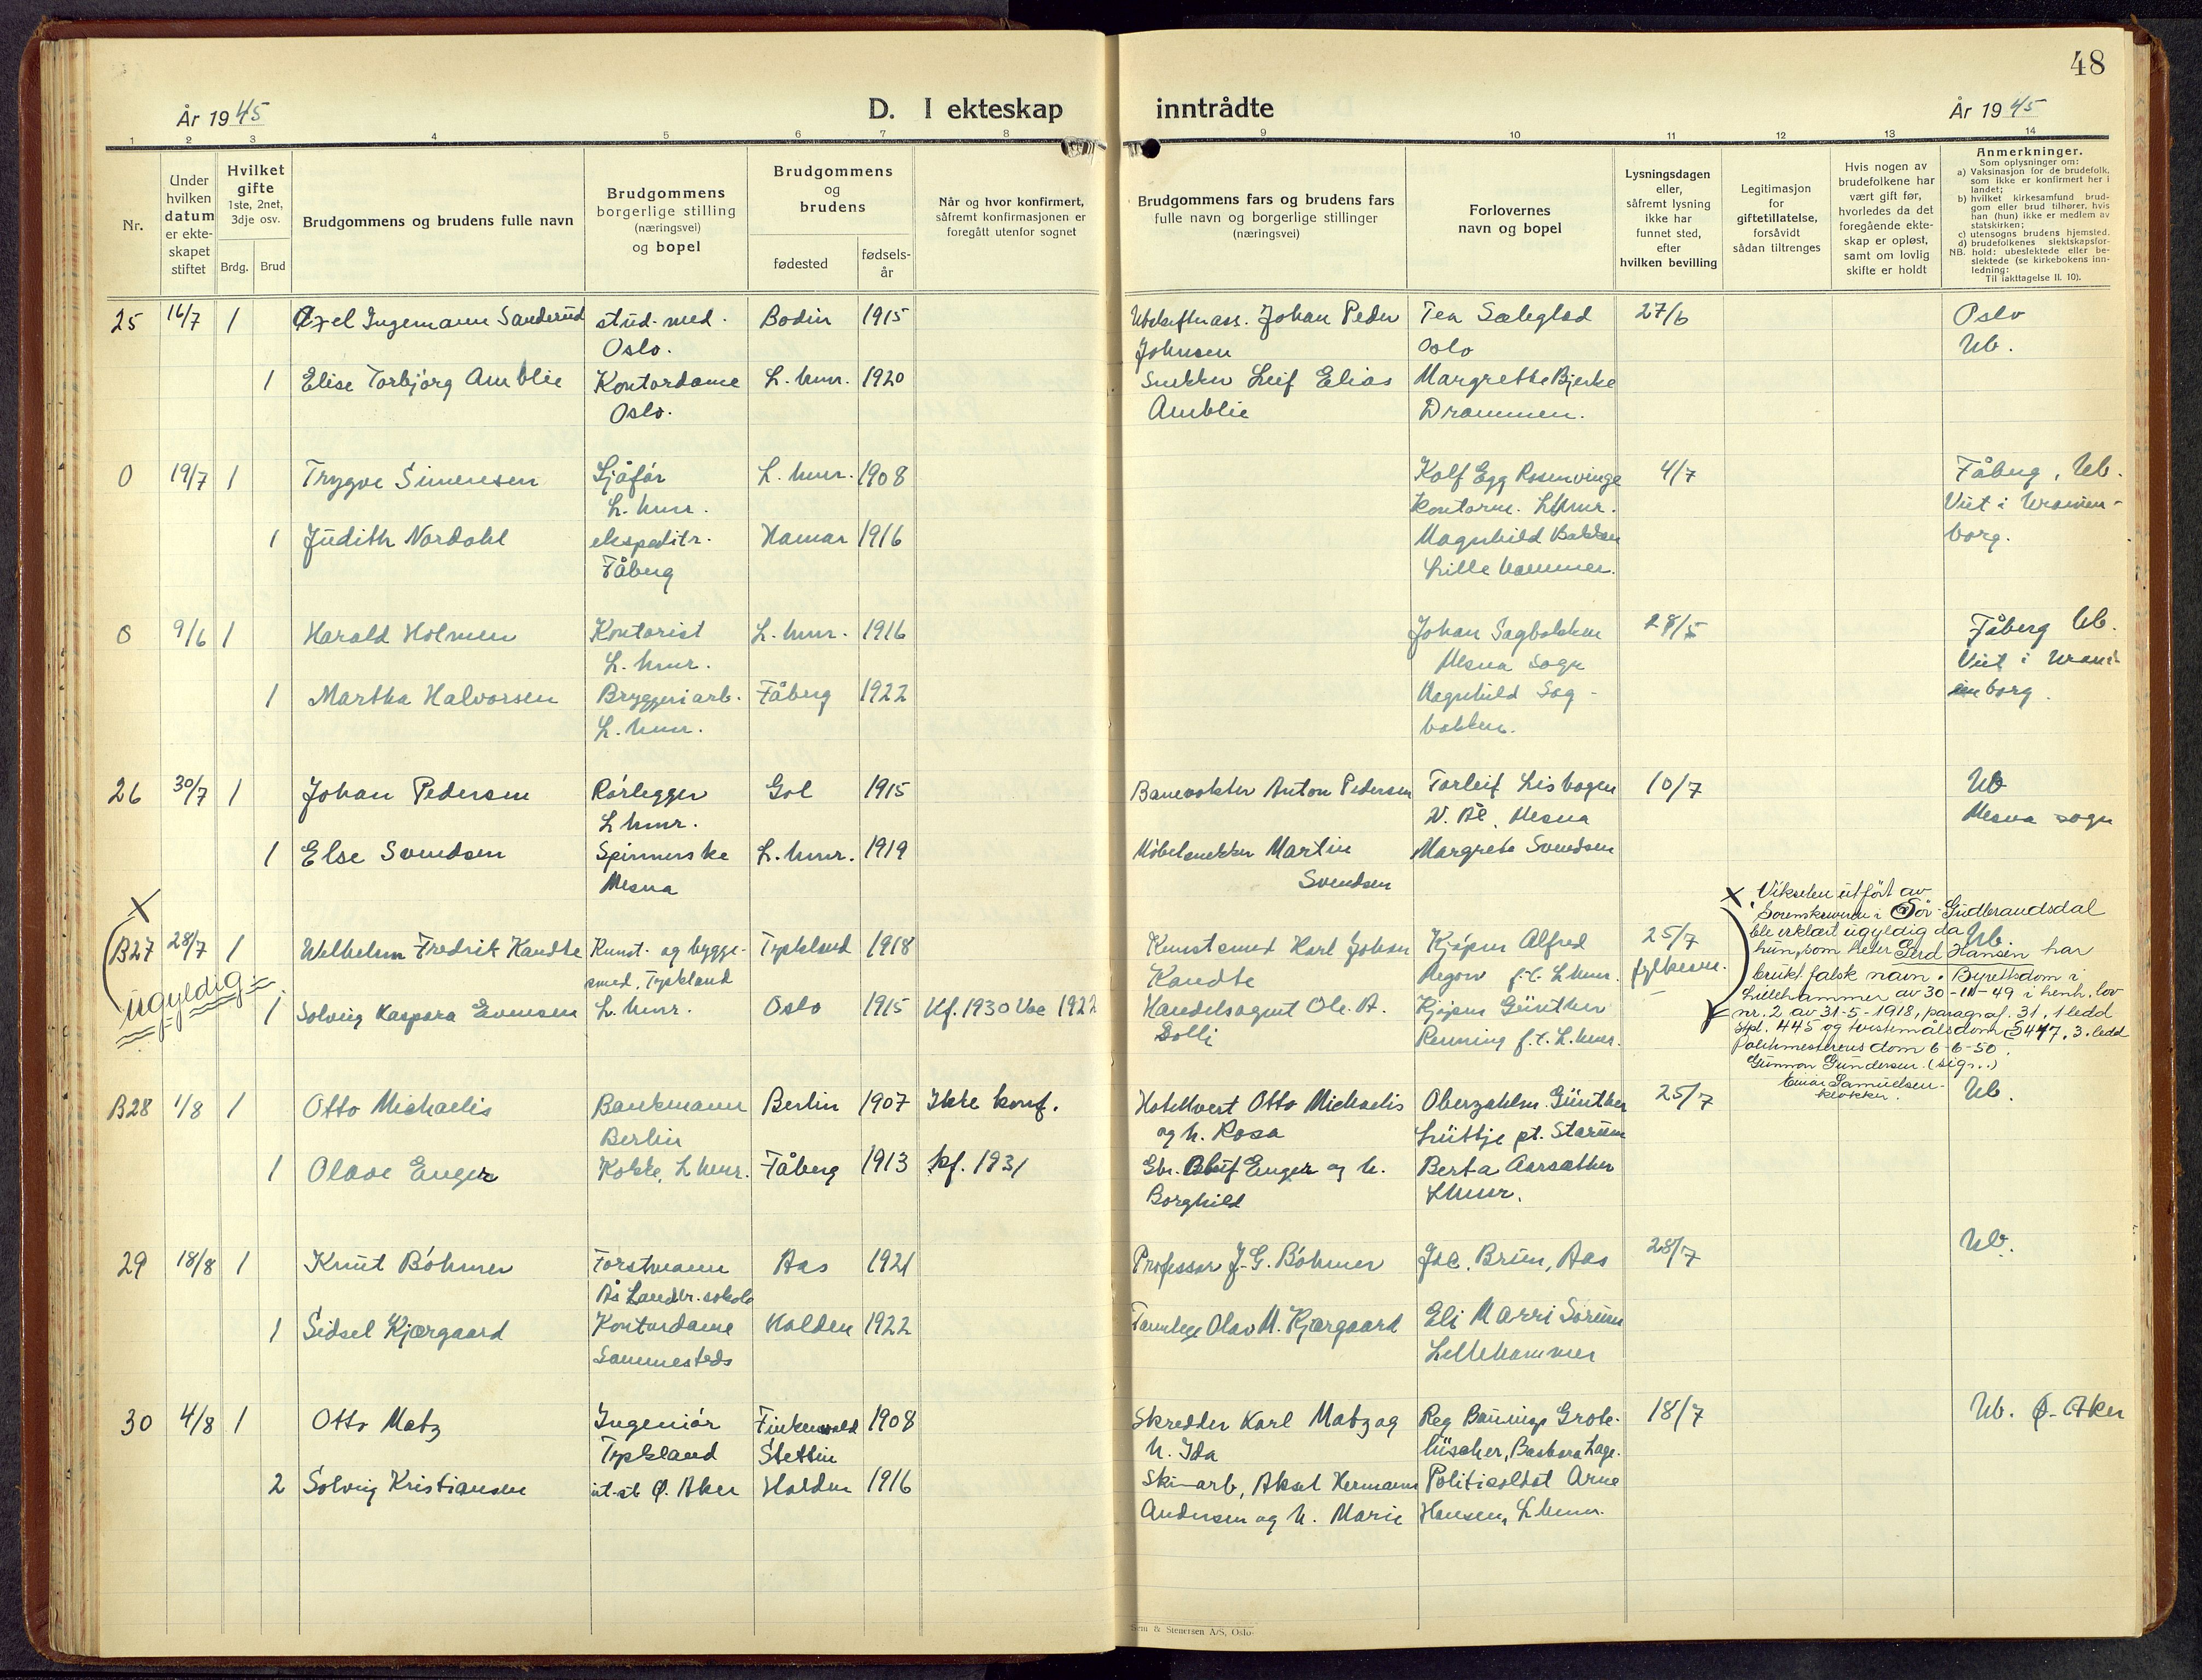 48
År 1945
D. I ekteskap
inntrådte
År 1945
1 2 3 4 5 6 7 8 9 10 11 12 13 14
Nr.
Under
hvilken
datum
er ekte-
skapet
stiftet
Hvilket
gifte
1ste, 2net,
3dje osv.
Brdg. Brud
Brudgommens og brudens fulle navn
Brudgommens
borgerlige stilling
(næringsvei)
og bopel
Brudgommens
og
brudens
fødested
fødsels-
år
Når og hvor konfirmert,
såfremt konfirmasjonen er
foregått utenfor sognet
Brudgommens fars og brudens fars
fulle navn og borgerlige stillinger
(næringsvei)
Forlovernes
navn og bopel
Lysningsdagen
eller,
såfremt lysning
ikke har
funnet sted,
efter
hvilken bevilling
Legitimasjon
for
giftetillatelse,
forsåvidt
sådan tiltrenges
Hvis nogen av
brudefolkene har
vært gift før,
hvorledes da det
foregående ekte-
skap er opløst,
samt om lovlig
skifte er holdt
Anmerkninger.
Som oplysninger om:
a) Vaksinasjon for de brudefolk,
som ikke er konfirmert her i
landet;
b) hvilket kirkesamfund brud-
gom eller brud tilhører, hvis
han (hun) ikke er medlem av
statskirken;
c) utensogns brudens hjemsted.
d) brudefolkenes slektskapsfor-
NB. hold: ubeslektede eller be-
slektede (se kirkebokens inn-
ledning:
Til iakttagelse II. 10).
25 16/7 1 Axel Ingemann Sanderud stud. med. Bodin 1915 Johan Peder Tea Sæleglad 27/6 Oslo
Oslo. Johnsen Oslo Ub.
1 Elise Torbjørg Amblie Kontordame L.hmr. 1920 Snekker Leif Elias Margrethe Bjerke
Oslo. Amblie Drammen.
0 19/7 1 Trygve Simensen Sjåfør L.hmr. 1908 Rolf Egg Rosenvinge 4/7 Fåberg, Ub.
L.hmr. kontorm. Lhmr. Viet i Uranien-
1 Judith Nordahl ekspeditr. Hamar 1916 Magnhild Bakken borg.
Fåberg Lillehammer.
0 9/6 1 Harald Holmen Kontorist L.hmr. 1916 Johan Sagbakken 28/5 Fåberg Ub.
L.hmr. Mesna sogn Viet i Urani-
1 Martha Halvorsen Bryggeriarb. Fåberg 1922 Magnhild Sag- enborg.
L.hmr. bakken.
26 30/7 1 Johan Pedersen Rørlegger Gol 1915 Banevokter Anton Pedersen Torleif Lisbogen 10/7 Ub
L hmr. Mesna Mesna sogn
1 Else Svendsen Spinnerske L.hmr. 1919 Møbelsnekker Martin Margrete Svendsen
Mesna Svendsen
X
B27 28/7 1 Wilhelm Fredrik Kandte Kunst- og bygge- Tyskland 1918 Kunstsmed Karl Johan Alfred 25/7 Ub.
smed, Tyskland Kandte f.t. L.hmr. fylkesm.
ugyldig
1 Solveig Kaspara Evensen L.hmr. Oslo 1915 Kf. 1930 Vac 1922 Handelsagent Ole A. Günther
Dolli Renning f.t. L.hmr.
X Vikselen utført av
Sorenskriveren i Sør-Gudbrandsdal
ble erklært ugyldig da
hun, som heter Gerd Hansen har
brukt falsk navn. Byrettsdom i
Lillehammer av 30-11-49 i henh. lov
nr. 2 av 31-5-1918, paragraf 31, 1 ledd
Stpl. 445 og tvistmålsdom § 447, 3. ledd
Politimesterens dom 6-6-50.
Gunnar Gundersen (sign.)
Einar Samuelsen
klokker.
B28 1/8 1 Otto Michaelis Bankmann Berlin 1907 Ikke konf. Hotellvert Otto Michaelis Oberzahlm. Günther 25/7 Ub.
Berlin og h. Rosa Lüttje pt. Starum
1 Olave Enger Kokke, L hmr. Fåberg 1913 kf. 1931 Gbr. Enger og h. Berta Aarsæther
Borghild Lhmr.
29 18/8 1 Knut Bøhmer Forstmann Aas 1921 Professor J.G. Bøhmer Brun, Aas 28/7 Ub.
Ås Landbr. skole
1 Sidsel Kjærgaard Kontordame Halden 1922 Tannlege Olav M. Kjærgaard Eli Marri Sørum
Sammesteds Lillehammer
30 4/8 1 Otto Matz Ingeniør Finkenwald 1908 Skredder Karl Matz og Reg 18/7 Ub. Ø. Aker
Tyskland Stettin h. Ida Barbara
2 Solveig Kristiansen Ø. Aker Halden 1916 Ski-arb, Aksel Hermann Politisoldat Arne
Andersen og h. Marie Hansen, Lhmr.
Sem & Stenersen A/S, Oslo.